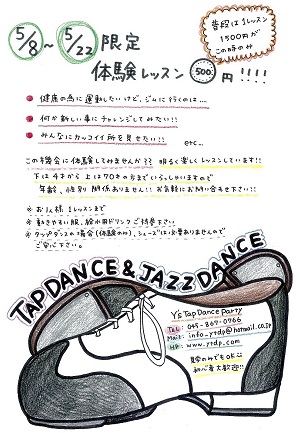 5/8~5/22限定
体験レッスン500円!!!!
普段は1レッスン
1500円が
この時のみ
健康の為に運動したいけど、ジムに行くのは…
何か新しい事にチャレンジしてみたい!!
みんなにカッコイイ所を見せたい!!
etc…
この機会に体験してみませんか?? 明るく楽しくレッスンしています!!
下は4才から上は70才の方までいらっしゃいますので
年齢、性別関係ありません!! お気軽にお問い合わせ下さい!!
※お1人様 1レッスンまで
※動きやすい服、給水用ドリンクご持参下さい
※タップダンスの場合(体験のみ)、シューズは必要ありませんので
ご安心下さい。
TAP DANCE & JAZZ DANCE
Y's Tap Dance Party
TEL: 045-867-0766
Mail: info_ytdp@hotmail.co.jp
HP: www.ytdp.com
見学のみでもOK
初心者大歓迎!!